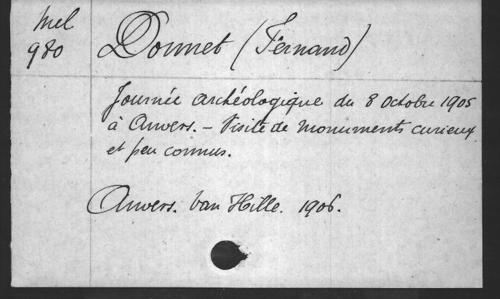 Mel
980
Donnet (Fernand)
Journée archéologique du 8 Octobre 1905
à Anvers. – Visite de monuments curieux
et peu connus.
Anvers. Van Hille. 1906.